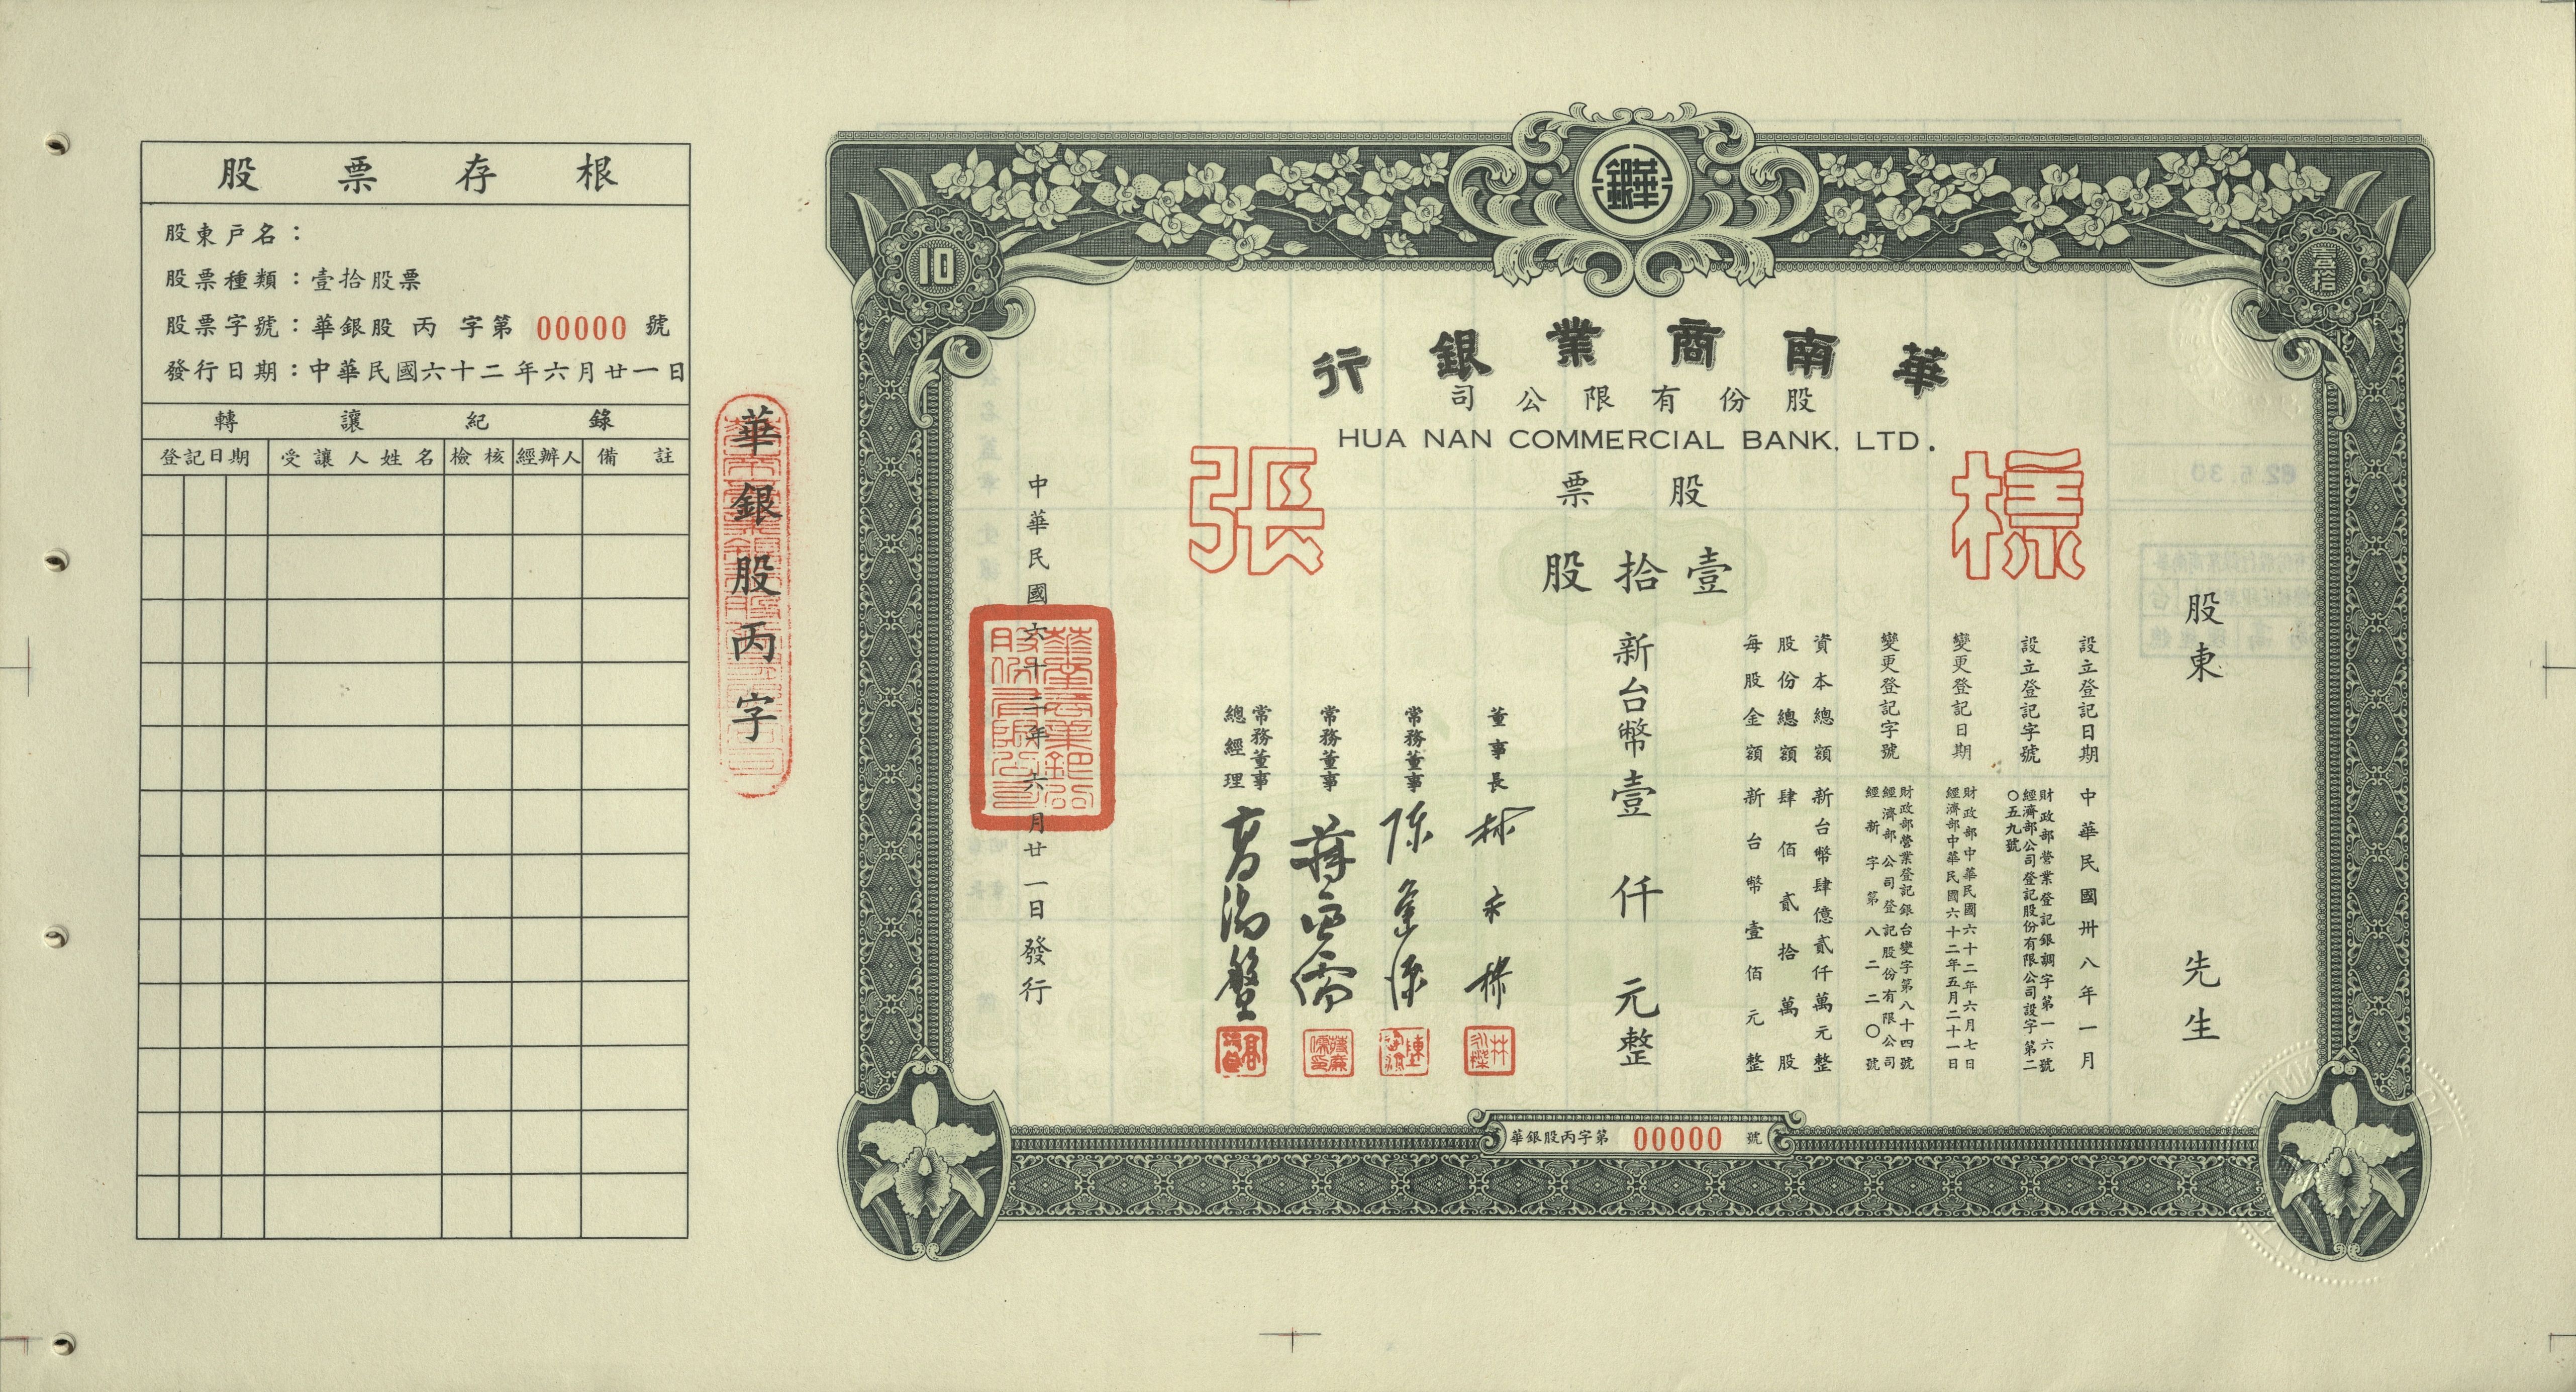 股票存根
股東戶名：
股票種類：壹拾股票
股票字號：華銀股 丙 字第 00000 號
發行日期：中華民國六十二年六月廿一日
轉讓紀錄
登記日期 受讓人姓名 檢核 經辦人 備註
華銀股丙字
10
華銀
壹拾
華南商業銀行
股份有限公司
HUA NAN COMMERCIAL BANK, LTD.
樣張
股票
壹拾股
股東 先生
設立登記日期 中華民國卅八年一月
設立登記字號 財政部營業登記銀調字第一六號
經濟部公司登記股份有限公司設字第二
〇五九號
變更登記日期 財政部中華民國六十二年六月七日
經濟部中華民國六十二年五月二十一日
變更登記字號 財政部營業登記銀台變字第八十四號
經濟部公司登記股份有限公司
經新字第八二二〇號
資本總額 新台幣肆億貳仟萬元整
股份總額 肆佰貳拾萬股
每股金額 新台幣壹佰元整
新台幣壹仟元整
董事長
常務董事
常務董事
常務董事
總經理
中華民國六十二年六月廿一日發行
華銀股丙字第 00000 號